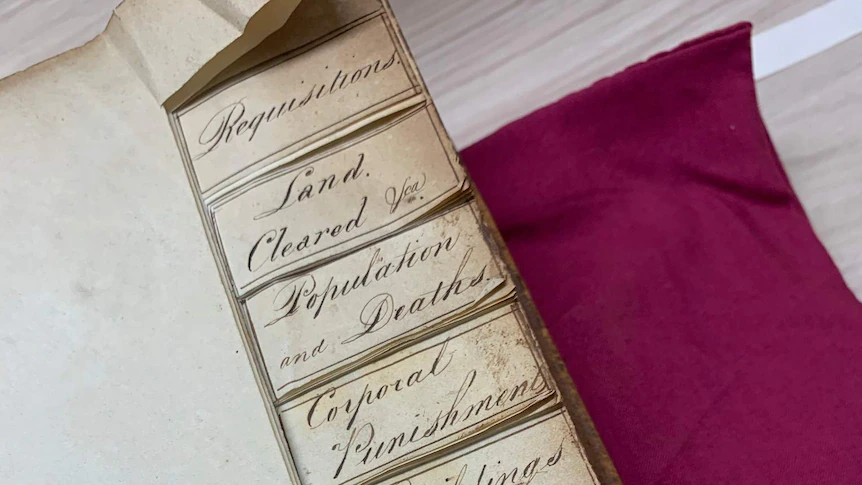 Requisitions.
Land.
Cleared &ca
Population
and Deaths.
Corporal
Punishment